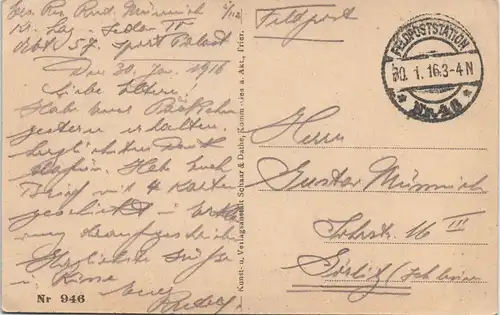 Ges. Rg. Rud. Münnich
Kr. Laz. Sedan IV
Abt. 57. Sport Palast
Den 30. Jan. 1916
Liebe Eltern!
Habe euer Päckchen
gestern erhalten.
herzlichsten Dank
dafür. Hab Euch
Brief mit 4 Karten
geschickt
Herzlichste Grüße
u. Küsse
Euer
Rudolf
Nr 946
Kunst- u. Verlagsanstalt Schaar & Dathe, Komm.-Ges. a. Akt., Trier.
Feldpost
FELDPOSTSTATION
30. 1. 16. 3-4 N
* Nr. 46 *
Herrn
Gustav Münnich
16 III
Görlitz (Schlesien